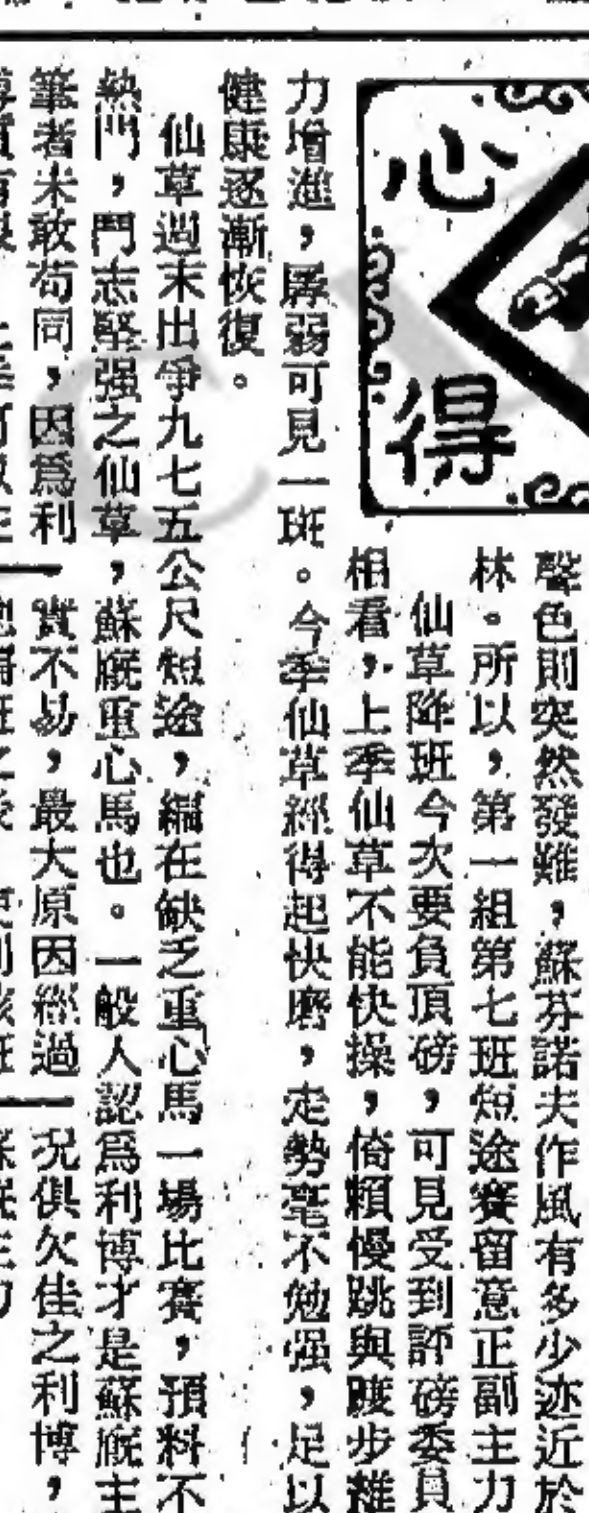 心得
聲色則突然發難，蘇芬諾夫作風有多少迹近於
林。所以，第一組第七班短途賽留意正副主力
仙草降班今次要負頂磅，可見受到評磅委員
相看，上季仙草不能快操，倚賴慢跳與踱步難
力增進，孱弱可見一斑。今季仙草經得起快磨，走勢毫不勉强，足以
健康逐漸恢復。
仙草週末出爭九七五公尺短途，編在缺乏重心馬一場比賽，預料不
熱門，鬥志堅强之仙草，蘇廐重心馬也。一般人認爲利博才是蘇廐主
筆者未敢苟同，因爲利
實不易，最大原因經過
况俱欠佳之利博，